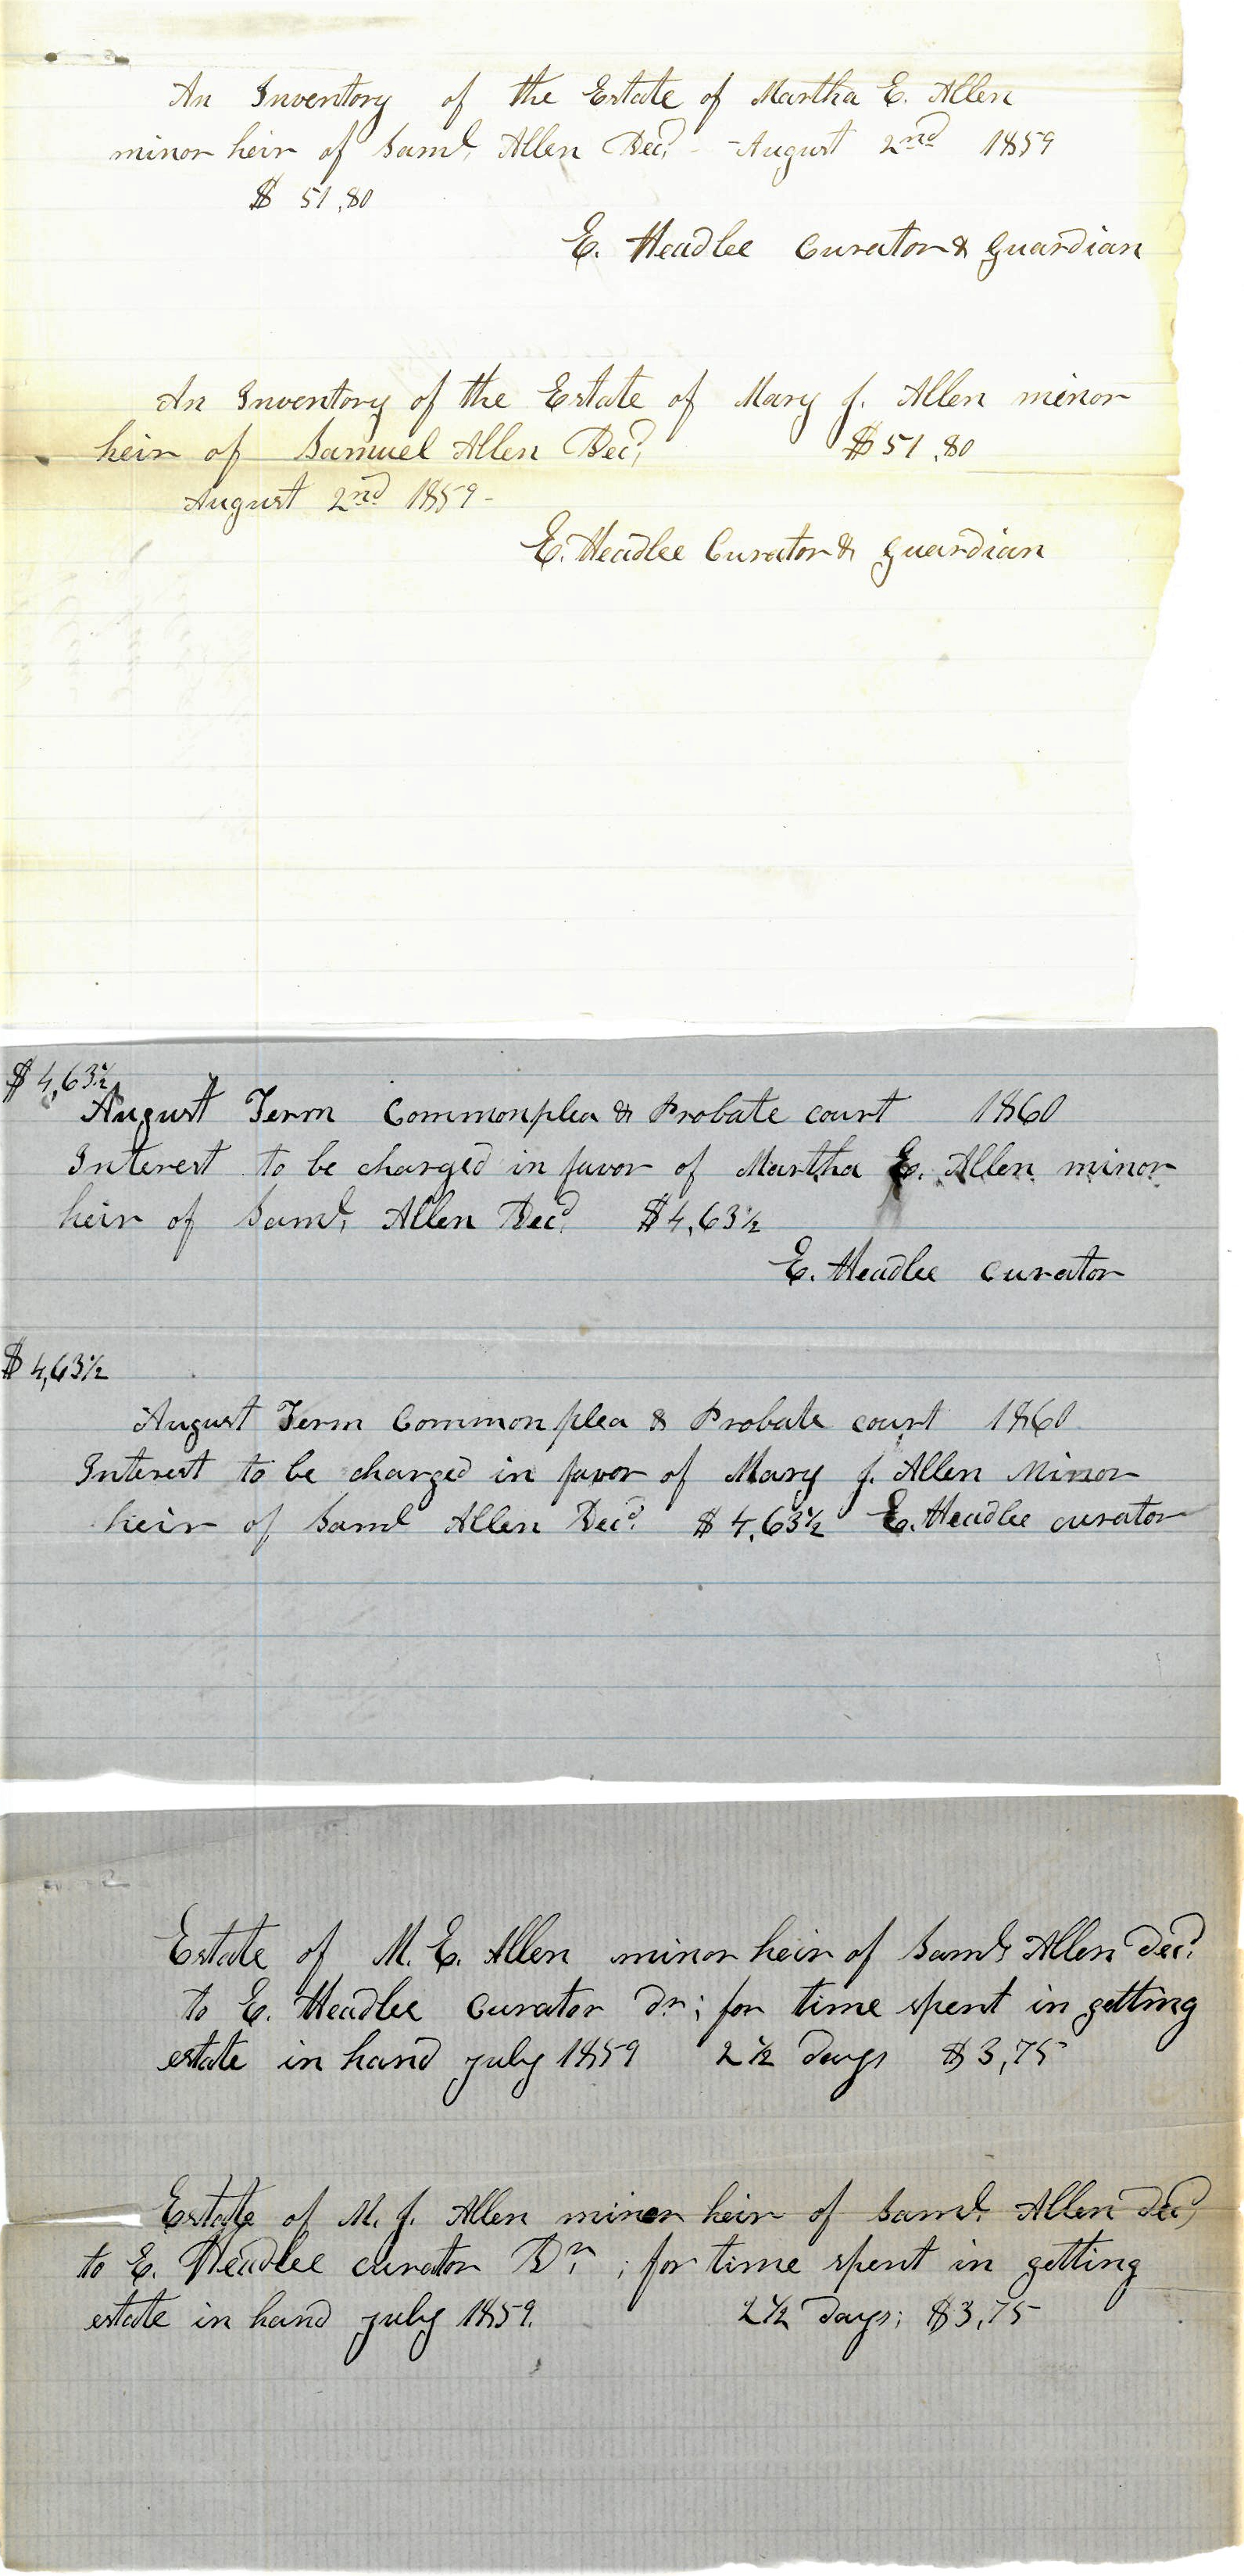 An Inventory of the Estate of Martha E. Allen
minor heir of Saml. Allen Decd. - August 2nd 1859
$ 51,80
E. Headlee Curator & Guardian
An Inventory of the Estate of Mary J. Allen minor
heir of Samuel Allen Decd, $51,80
August 2nd 1859 -
E. Headlee Curator & Guardian
$ 4,63½
August Term Commonplea & Probate court 1860
Interest to be charged in favor of Martha E. Allen minor
heir of Saml. Allen Decd. $4,63½
E. Headlee curator
$ 4,63½
August Term Common plea & Probate court 1860
Interest to be charged in favor of Mary J. Allen Minor
heir of Saml Allen Decd. $ 4,63½ E. Headlee curator
Estate of M. E. Allen minor heir of Saml Allen decd.
to E. Headlee Curator dr; for time spent in getting
estate in hand july 1859 2½ days $3,75
Estate of M. J. Allen minor heir of Saml. Allen decd
to E. Headlee curator Dr. ; for time spent in getting
estate in hand july 1859. 2½ days; $3,75